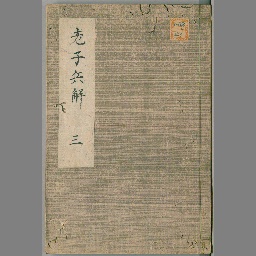 老子兵解 三